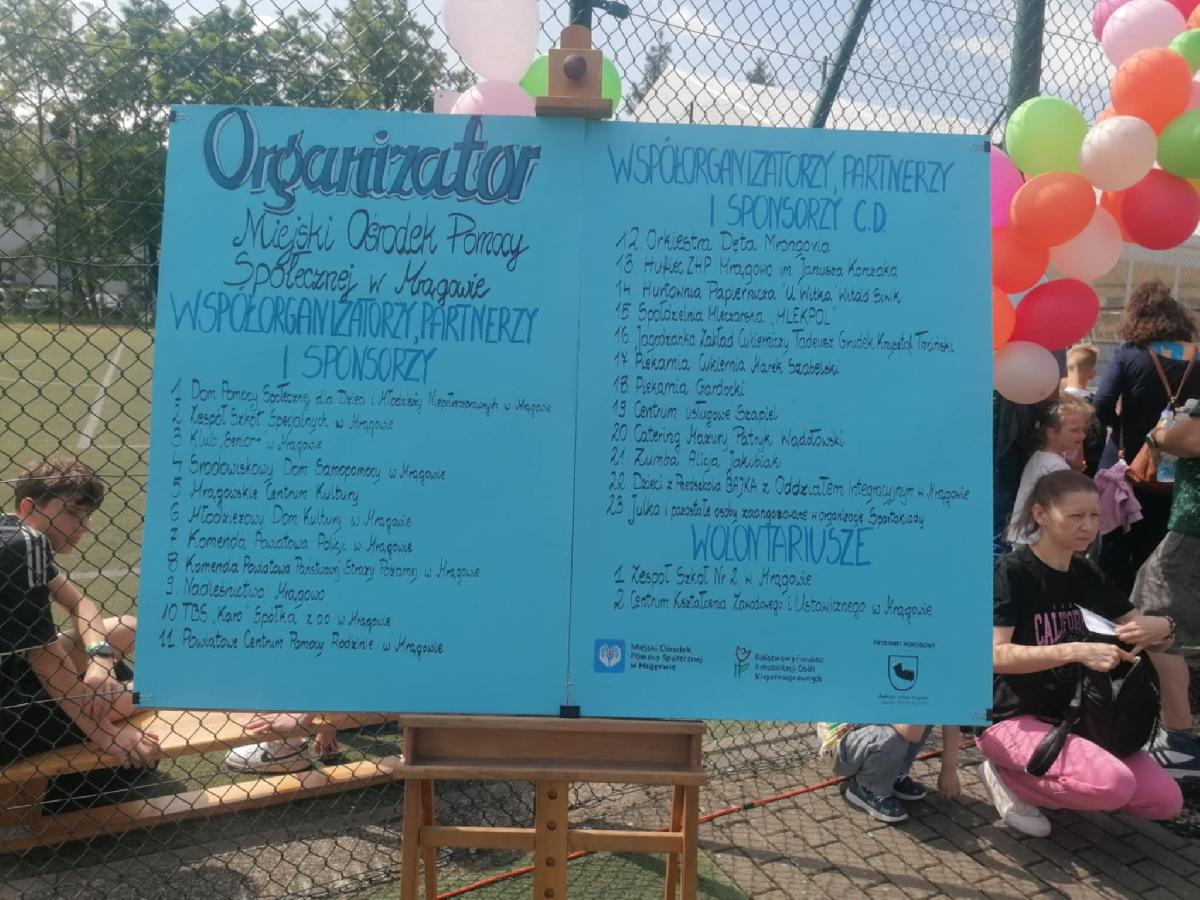 Organizator
Miejski Ośrodek Pomocy
Społecznej w Mrągowie
WSPÓŁORGANIZATORZY, PARTNERZY
I SPONSORZY
1 Dom Pomocy Społecznej dla Dzieci i Młodzieży Niepełnosprawnych w Mrągowie
2 Zespół Szkół Specjalnych w Mrągowie
3 Klub „Senior+" w Mrągowie
4 Środowiskowy Dom Samopomocy w Mrągowie
5 Mrągowskie Centrum Kultury
6 Młodzieżowy Dom Kultury w Mrągowie
7 Komenda Powiatowa Policji w Mrągowie
8 Komenda Powiatowa Państwowej Straży Pożarnej w Mrągowie
9 Nadleśnictwo Mrągowo
10 TBS „Karo" Spółka z oo w Mrągowie
11 Powiatowe Centrum Pomocy Rodzinie w Mrągowie
WSPÓŁORGANIZATORZY, PARTNERZY
I SPONSORZY C.D.
12. Orkiestra Dęta Mrongovia
13. Hufiec ZHP Mrągowo im. Janusza Korczaka
14 Hurtownia Papiernicza "U Witka" Witold Siwik
15 Spółdzielnia Mleczarska „MLEKPOL"
16 Jagodzianka Zakład Cukierniczy Tadeusz Grudek Krzysztof
17 Piekarnia Cukiernia Marek Szabelski
18 Piekarnia Gardocki
19 Centrum usługowe Szapiel
20 Catering Mazury Patryk Wądołowski
21. Zumba Alicja Jakubiak
22 Dzieci z Przedszkola BAJKA z Oddziałem Integracyjnym w Mrągowie
23 Julka i pozostałe osoby zaangażowane w organizację Spartakiady
WOLONTARIUSZE
1. Zespół Szkół Nr 2 w Mrągowie
2. Centrum Kształcenia Zawodowego i Ustawicznego w Mrągowie
Miejski Ośrodek
Pomocy Społecznej
w Mrągowie
Państwowy Fundusz
Rehabilitacji Osób
Niepełnosprawnych
PATRONAT HONOROWY